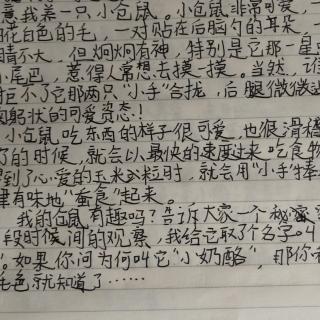 意我养一只小仓鼠。小仓鼠非常可爱,一
花白色的毛,一对贴在后脑勺的耳朵
睛不大,但炯炯有神,特别是它那一星
小尾巴,惹得人常想去摸一摸。当然,谁
拒不了它那两只“小手”合拢,后腿微微
躬状的可爱姿态!
小仓鼠吃东西的样子很可爱,也很滑稽
了的时候,就会以最快的速度过来吃食物
得到了心爱的玉米粒时,就会用“小手”捧
津有味地“蚕食”起来。
我的仓鼠有趣吗?告诉大家一个秘密
段时候间的观察,我给它取了个名字叫
”。如果你问为何叫它“小奶酪”,那你
毛色就知道了……